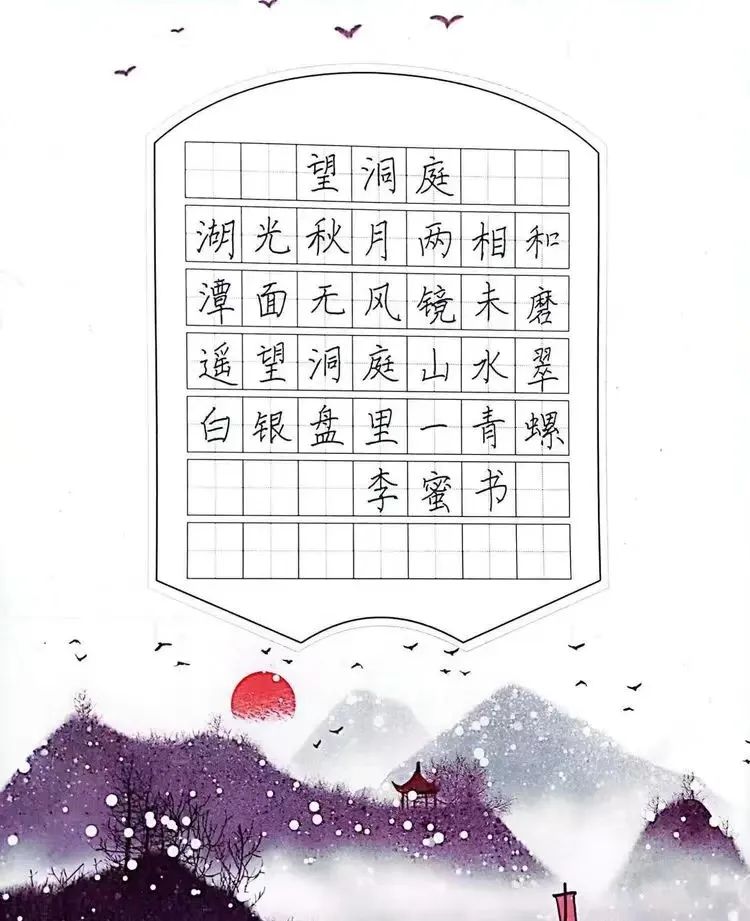 望洞庭
湖光秋月两相和
潭面无风镜未磨
遥望洞庭山水翠
白银盘里一青螺
李蜜书